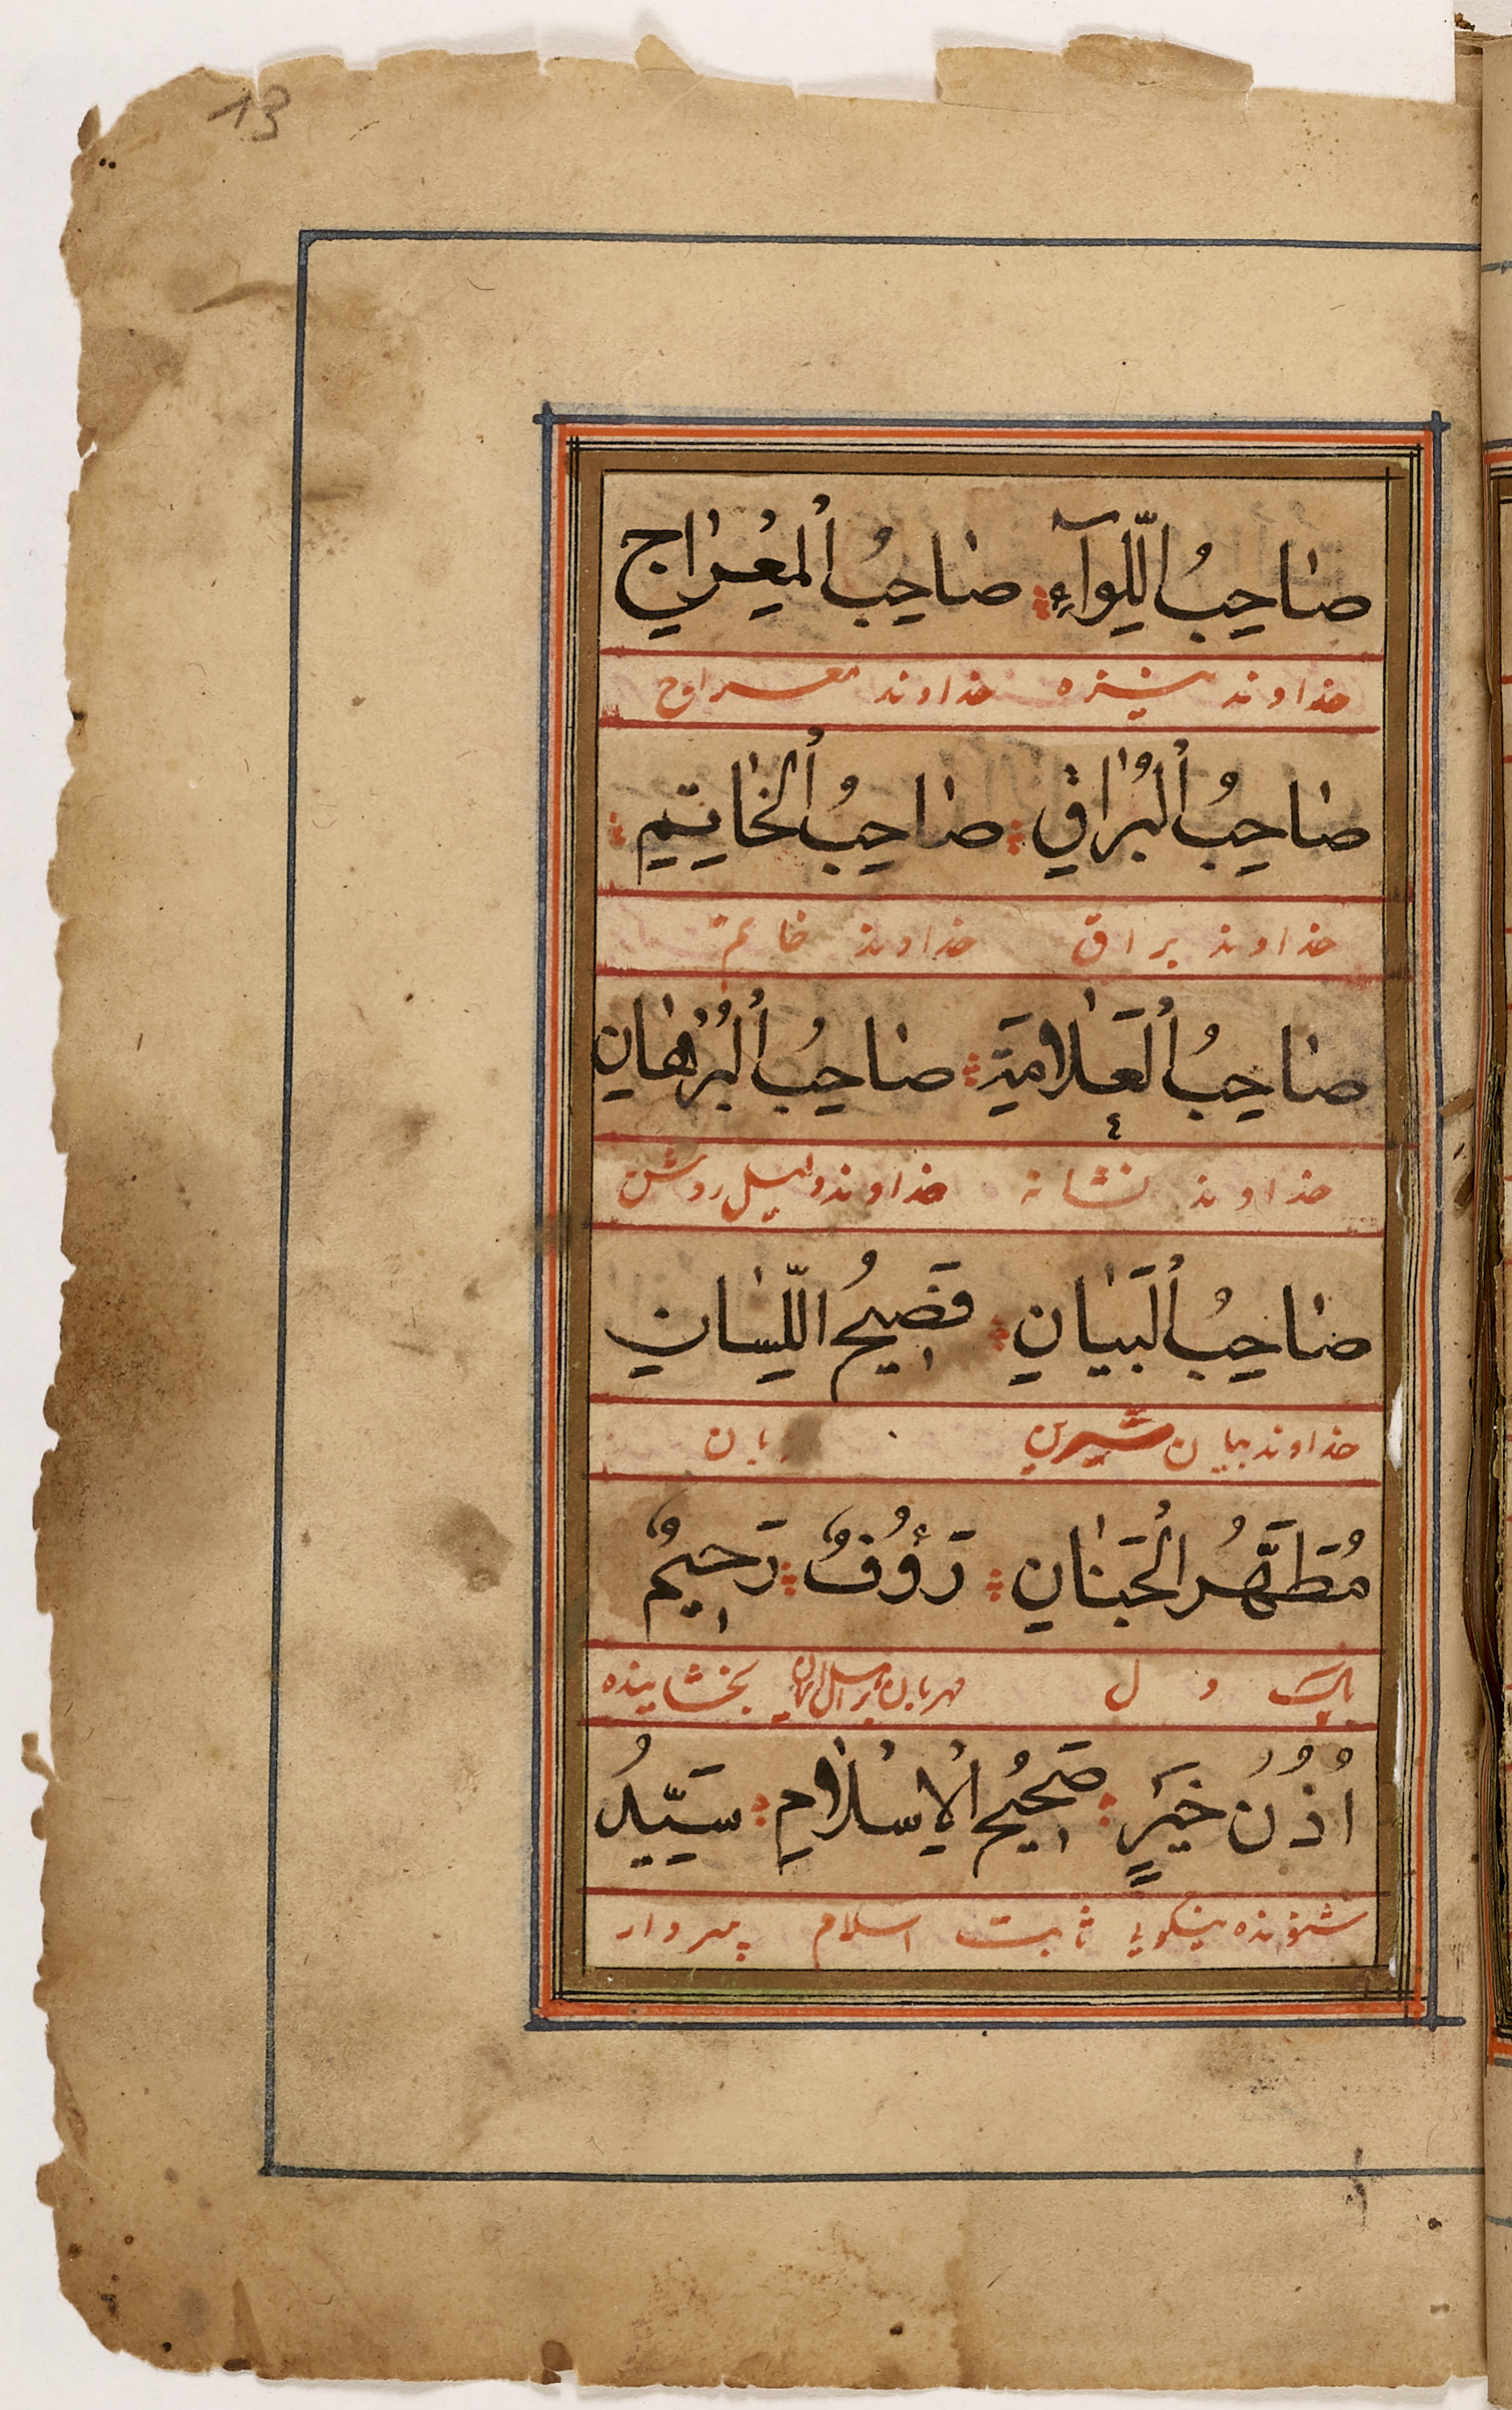 13
صَاحِبُ اللِّوَآءِ صَاحِبُ الْمِعْرَاجِ
خداوند نیزه خداوند معراج
صَاحِبُ الْبُرَاقِ صَاحِبُ الْخَاتِمِ
خداوند براق خداوند خاتم
صَاحِبُ الْعَلَامَةِ صَاحِبُ الْبُرْهَانِ
خداوند نشانه خداوند دلیل روشن
صَاحِبُ الْبَيَانِ فَصِيحُ اللِّسَانِ
خداوند بیان شیرین زبان
مُطَهَّرُ الْجَنَانِ رَؤُفٌ رَحِيمٌ
پاک دل مهربان بخشاینده
اُذُنُ خَيْرٍ صَحِيحُ الْاِسْلَامِ سَيِّدُ
شنونده نیکویی ثابت اسلام